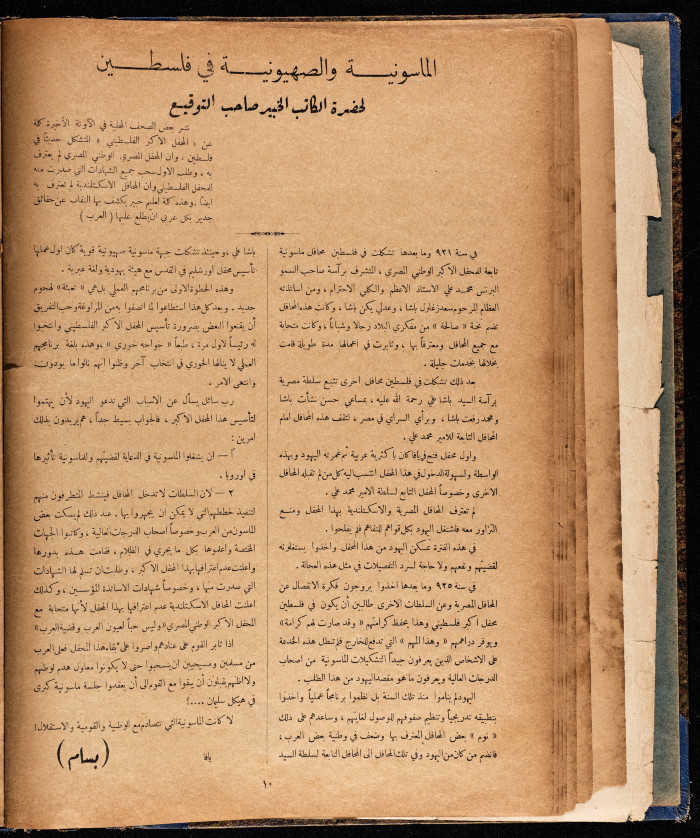 الماسونية والصهيونية في فلسطين
لحضرة الكاتب الخبير صاحب التوقيع
نشر بعض الصحف المحلية في الآونة الأخيرة كلمة
عن « المحفل الاكبر الفلسطيني » المتشكل حديثاً في
فلسطين ، وان المحفل المصري الوطني المصري لم يعترف
به ، وطلب الاول سحب جميع الشهادات التي صدرت منه
لمحفل الفلسطيني وان المحافل الاسكتلندية لم تعترف به
ايضاً . وهذه كلمة لعليم خبير يكشف بها النقاب عن حقائق
جدير بكل عربي ان يطلع عليها ( العرب )
في سنة ٩٢١ وما بعدها تشكلت في فلسطين محافل ماسونية
تابعة للمحفل الاكبر الوطني المصري ، المتشرف برآسة صاحب السمو
البرنس محمد علي الاستاذ الاعظم والكلي الاحترام ، ومن اساتذته
العظام المرحوم سعد زغلول باشا ، وعدلي يكن باشا ، وكانت هذه المحافل
تضم نخبة « صالحة » من مفكري البلاد رجالا وشباناً ، وكانت متحابة
مع جميع المحافل ومعترفاً بها ، وثابرت في اعمالها مدة طويلة قامت
بخلالها بخدمات جليلة .
بعد ذلك تشكلت في فلسطين محافل اخرى تتبع سلطة مصرية
برآسة السيد باشا علي رحمة الله عليه ، بمساعي حسن نشأت باشا
ومحمد رفعت باشا ، وبرأي السراي في مصر ، لتقف هذه المحافل امام
المحافل التابعة للامير محمد علي .
واول محفل فتح في يافا كان بأكثرية عربية ثم غمرته اليهود وبهذه
الواسطة ولسهولة الدخول في هذا المحفل انتسب اليه كل من لم تقبله المحافل
الاخرى وخصوصاً المحفل التابع لسلطة الامير محمد علي .
لم تعترف المحافل المصرية والاسكتلندية بهذا المحفل ومنع
التزاور معه فاشتغل اليهود بكل قواهم للتفاهم فلم يفلحوا .
في هذه الفترة تمكن اليهود من هذا المحفل واخذوا يستغلونه
لقضيتهم ونفعهم ولا حاجة لسرد التفصيلات في مثل هذه العجالة .
في سنة ٩٢٥ وما بعدها اخذوا يروجون فكرة الانفصال عن
المحافل المصرية وعن السلطات الاخرى طالبين أن يكون في فلسطين
محفل اكبر فلسطيني وهذا يحفظ كرامتهم « وقد صارت لهم كرامة »
ويوفر دراهمهم « وهذا المهم » التي تدفع للخارج فلم تنطل هذه الخدعة
على الاشخاص الذين يعرفون جيداً التشكيلات الماسونية من اصحاب
الدرجات العالية ويعرفون ما هو مقصد اليهود من هذا الطلب .
اليهود لم يناموا منذ تلك السنة بل نظموا برنامجاً عملياً واخذوا
بتطبيقه تدريجياً وتنظيم صفوفهم للوصول لغايتهم ، وساعدهم على ذلك
« نوم » بعض المحافل المعترف بها وضعف في وطنية بعض العرب ،
فانضم من كان من اليهود وفي تلك المحافل الى المحافل التابعة لسلطة السيد
باشا علي ، وحينئذ تشكلت جبهة ماسونية صهيونية قوية كان اول عملها
تأسيس محفل اورشليم في القدس مع هيئة يهودية ولغة عبرية .
وهذه الخطوة الاولى من برنامجهم العملي بل هي « تعبئة » لهجوم
جديد . وبعد كل هذا استطاعوا لما اتصفوا به من المراوغة وحب التفريق
أن يقنعوا البعض بضرورة تأسيس المحفل الاكبر الفلسطيني وانتخبوا
له رئيساً لاول مرة ، طبعاً « خواجه خوري » ، وهذه بلغة برنامجهم
العملي لا ينالها الخوري في انتخاب آخر وظنوا أنهم نالوا ما يودون
وانتهى الامر .
رب سائل يسأل عن الاسباب التي تدعو اليهود لأن يهتموا
لتأسيس هذا المحفل الاكبر ، فالجواب بسيط جداً ، هم يريدون بذلك
امرين :
١ — ان يشغلوا الماسونية في الدعاية لقضيتهم وللماسونية تأثيرها
في اوروبا .
٢ — لان السلطات لا تدخل المحافل فينشط المتطرفون منهم
لتنفيذ خططهم التي لا يمكن ان يجهروا بها . عند ذلك لم يسكت بعض
الماسون من العرب وخصوصاً أصحاب الدرجات العالية ، وكاتبوا الجهات
المختصة واعدوها بكل ما يجري في الظلام ، فقامت هذه بدورها
واعلنت عدم اعترافها بهذا المحفل الاكبر ، وطلبت ان تسلم لها الشهادات
التي صدرت منها ، وخصوصاً شهادات الاساتذة المؤسسين ، وكذلك
اعلنت المحافل الاسكتلندية عدم اعترافها بهذا المحفل لأنها متحابة مع
المحفل الاكبر الوطني المصري «وليس حباً لعيون العرب وقضية العرب»
اذا ثابر القوم على عنادهم واصروا على بقاء هذا المحفل فعلى العرب
من مسلمين ومسيحيين ان ينسحبوا حتى لا يكونوا معاول هدم لوطنهم
ولا اظنهم يقبلون أن يبقوا مع القوم الى أن يعقدوا جلسة ماسونية كبرى
في هيكل سليمان ....؟
لا كانت الماسونية التي تتصادم مع الوطنية والقومية والاستقلال!
يافا ( بسام )
١٠